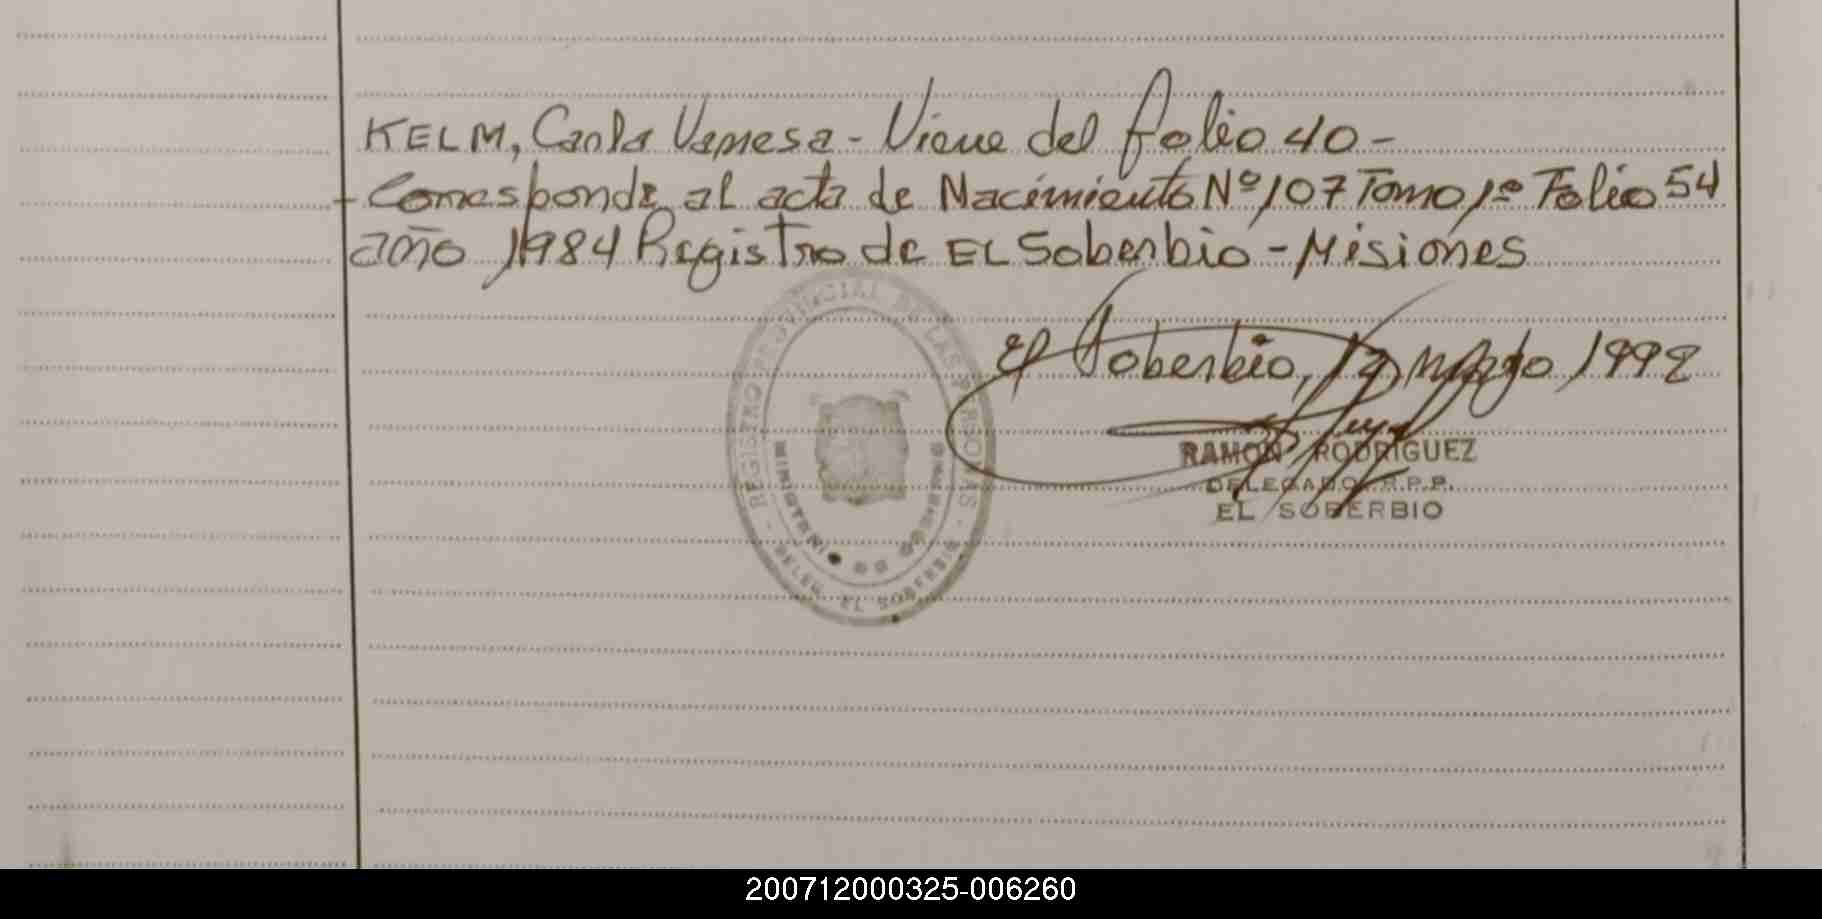 KELM, Carla Vanesa - Viene del folio 40 -
- Corresponde al acta de Nacimiento Nº 107 Tomo 1º Folio 54
año 1984 Registro de EL Soberbio - Misiones
El Soberbio, 1992
RAMON RODRIGUEZ
DELEGADO R.P.P.
EL SOBERBIO
REGISTRO PROVINCIAL DE LAS PERSONAS
MINISTERIO DE GOBIERNO
- DELEG. EL SOBERBIO -
200712000325-006260